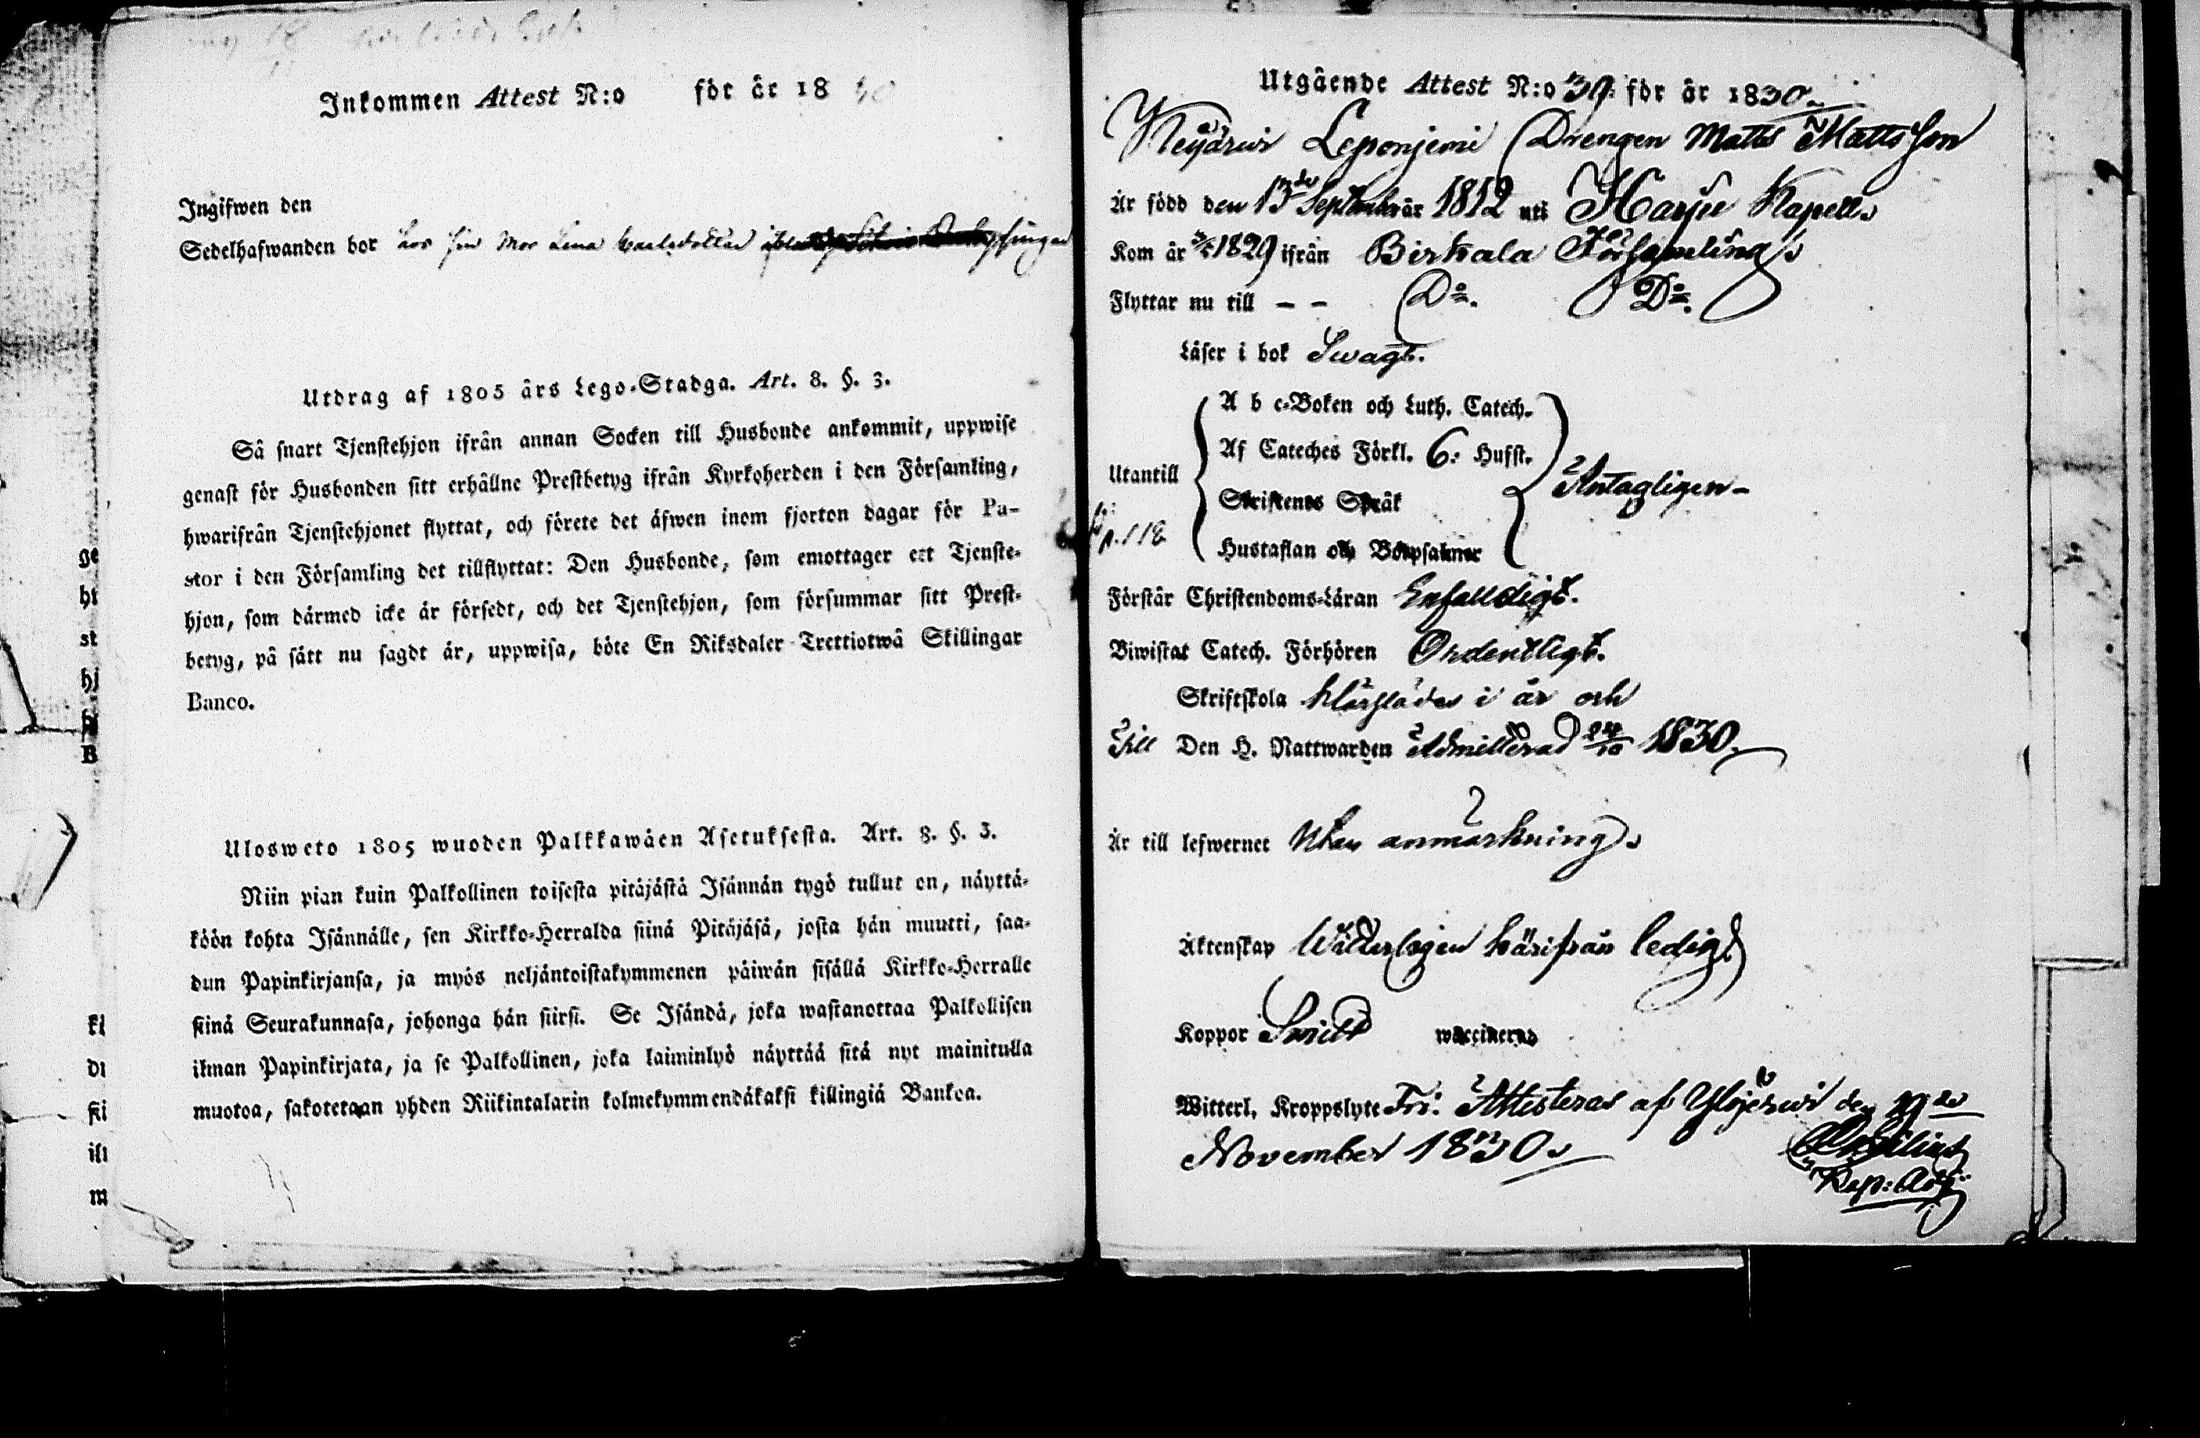 Inkommen Attest N:o för år 18
Ingifwen den
Sedelhafwanden bor hos sin Mor Lena Carlsdotter
Utdrag af 1805 års Lego-Stadga. Art. 8. §. 3.
Så snart Tjenstehjon ifrån annan Socken till Husbonde ankommit, uppwise
genast för Husbonden sitt erhållne Prestbetyg ifrån Kyrkoherden i den Församling,
hwarifrån Tjenstehjonet flyttat, och förete det äfwen inom fjorton dagar för Pa-
stor i den Församling det tillflyttat: Den Husbonde, som emottager ett Tjenste-
hjon, som därmed icke är försedt, och det Tjenstehjon, som försummar sitt Prest-
betyg, på sätt nu sagdt är, uppwisa, böte En Riksdaler Trettiotwå Skillingar
Banco.
Ulosweto 1805 wuoden Palkkawäen Asetuksesta. Art. 8. §. 3.
Niin pian kuin Palkollinen toisesta pitäjästä Isännän tygö tullut on, näyttä-
köön kohta Isännälle, sen Kirkko-Herralda siinä Pitäjäsä, josta hän muutti, saa-
dun Papinkirjansa, ja myös neljäntoistakymmenen päiwän sisällä Kirkko-Herralle
siinä Seurakunnasa, johonga hän siirsi. Se Isändä, joka wastanottaa Palkollisen
ilman Papinkirjata, ja se Palkollinen, joka laiminlyö näyttää sitä nyt mainitulla
muotoa, sakotetaan yhden Riikintalarin kolmekymmendäkaksi killingiä Bankoa.
Utgående Attest N:o 39 för år 1830
Leponjemi Drengen Matts Mattsson
Är född den 13de September år 1812 uti Harju Kapell
Kom år 1829 ifrån Birkala Församling
Flyttar nu till – – Do. Do.
Läser i bok Swagt.
Utantill
A b c-Boken och Luth. Catech.
Af Cateches Förkl. 6: Hufst.
Skriftenes Språk
Hustaflan och Botpsalmer
Antagligen –
p. 118
Förstår Christendoms-Läran Enfalldigt.
Biwistat Catech. Förhören Ordentligt.
Skriftskola i år och
Till Den H. Nattwarden Admitterad 24/10 1830
Är till lefwernet Utan anmärkning
Äktenskap Witterligen härifrån ledig
Koppor waccinerad
Witterl. Kroppslyte Fri. Attesteras af Ylöjerwi den 19de
November 1830
Kap: Adj: